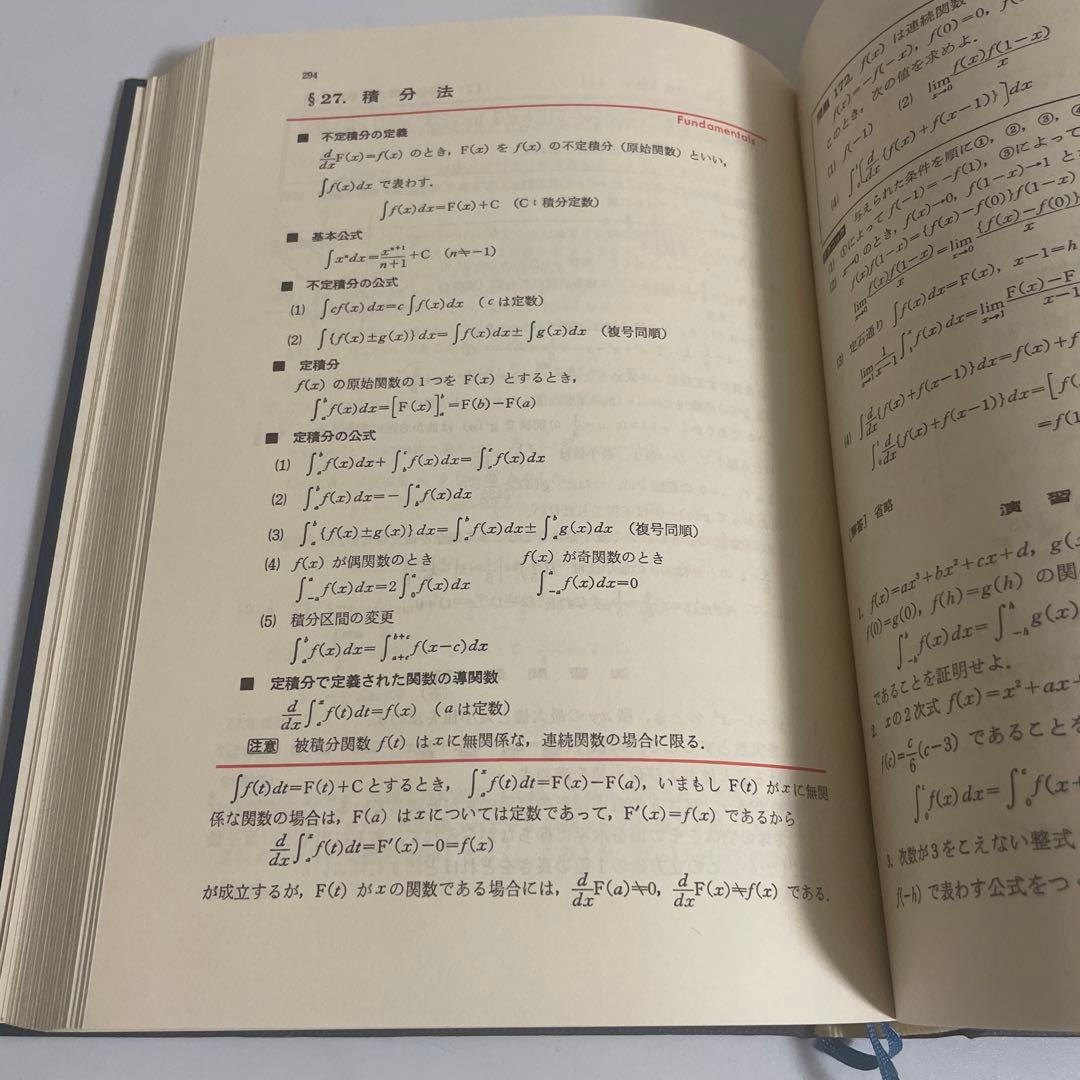 294
§27. 積分法
Fundamentals
■ 不定積分の定義
d/dx F(x)=f(x) のとき，F(x) を f(x) の不定積分（原始関数）といい，
∫f(x)dx で表わす．
∫f(x)dx=F(x)+C （C：積分定数）
■ 基本公式
∫xⁿdx=xⁿ⁺¹/n+1 +C （n≒−1）
■ 不定積分の公式
(1) ∫cf(x)dx=c∫f(x)dx （cは定数）
(2) ∫{f(x)±g(x)}dx=∫f(x)dx±∫g(x)dx （複号同順）
■ 定積分
f(x) の原始関数の1つを F(x) とするとき，
∫_a^b f(x)dx=[F(x)]_a^b=F(b)−F(a)
■ 定積分の公式
(1) ∫_a^b f(x)dx+∫_b^c f(x)dx=∫_a^c f(x)dx
(2) ∫_a^b f(x)dx=−∫_b^a f(x)dx
(3) ∫_a^b {f(x)±g(x)}dx=∫_a^b f(x)dx±∫_a^b g(x)dx （複号同順）
(4) f(x) が偶関数のとき f(x) が奇関数のとき
∫_−a^a f(x)dx=2∫_0^a f(x)dx ∫_−a^a f(x)dx=0
(5) 積分区間の変更
∫_a^b f(x)dx=∫_a+c^b+c f(x−c)dx
■ 定積分で定義された関数の導関数
d/dx ∫_a^x f(t)dt=f(x) （aは定数）
注意 被積分関数 f(t) はxに無関係な，連続関数の場合に限る．
∫f(t)dt=F(t)+Cとするとき，∫_a^x f(t)dt=F(x)−F(a)，いまもし F(t) がxに無関
係な関数の場合は，F(a) はxについては定数であって，F′(x)=f(x) であるから
d/dx ∫_a^x f(t)dt=F′(x)−0=f(x)
が成立するが，F(t) がxの関数である場合には，d/dx F(a)≒0，d/dx F(x)≒f(x) である．
172. f(x) は連続関数
f(x)=−f(−x)，f(0)=0，
このとき，次の値を求めよ．
(1) f(−1) (2) lim_x→0 f(x)f(1−x)/x
(4) ∫_0^1[d/dx{f(x)+f(x−1)}]dx
与えられた条件を順に①，②，③，
(1) ①によって f(−1)=−f(1)，③によって
(2) x→0 のとき，f(x)→0，f(1−x)→1
f(x)f(1−x)={f(x)−f(0)}f(1−x)
lim_x→0 f(x)f(1−x)/x=lim_x→0 {f(x)−f(0)}/x
(3) 定石通り ∫f(x)dx=F(x)，x−1=h
lim_x→1 1/x−1 ∫_1^x f(x)dx=lim_x→1 F(x)−F/x−1
(4) ∫d/dx{f(x)+f(x−1)}dx=f(x)+f
∫_0^1 d/dx{f(x)+f(x−1)}dx=[f(x)
=f(1
[解答] 省略
演習
1. f(x)=ax³+bx²+cx+d，g(x
f(0)=g(0)，f(h)=g(h) の関
∫_−h^h f(x)dx=∫_−h^h g(x)
であることを証明せよ．
2. xの2次式 f(x)=x²+ax+
f(c)=c/6(c−3) であることを
∫_0^c f(x)dx=∫_0^c f(x+
3. 次数が3をこえない整式
f(−h) で表わす公式をつく